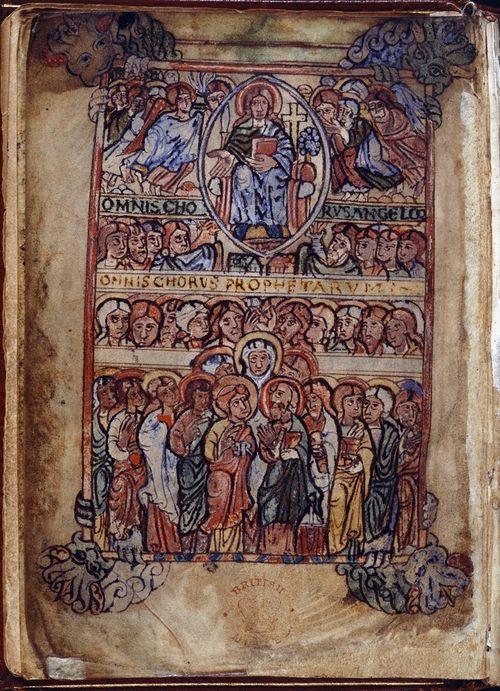 OMNIS CHO RUS ANGELOR
OMNIS CHORUS PROPHETARUM
BRITISH